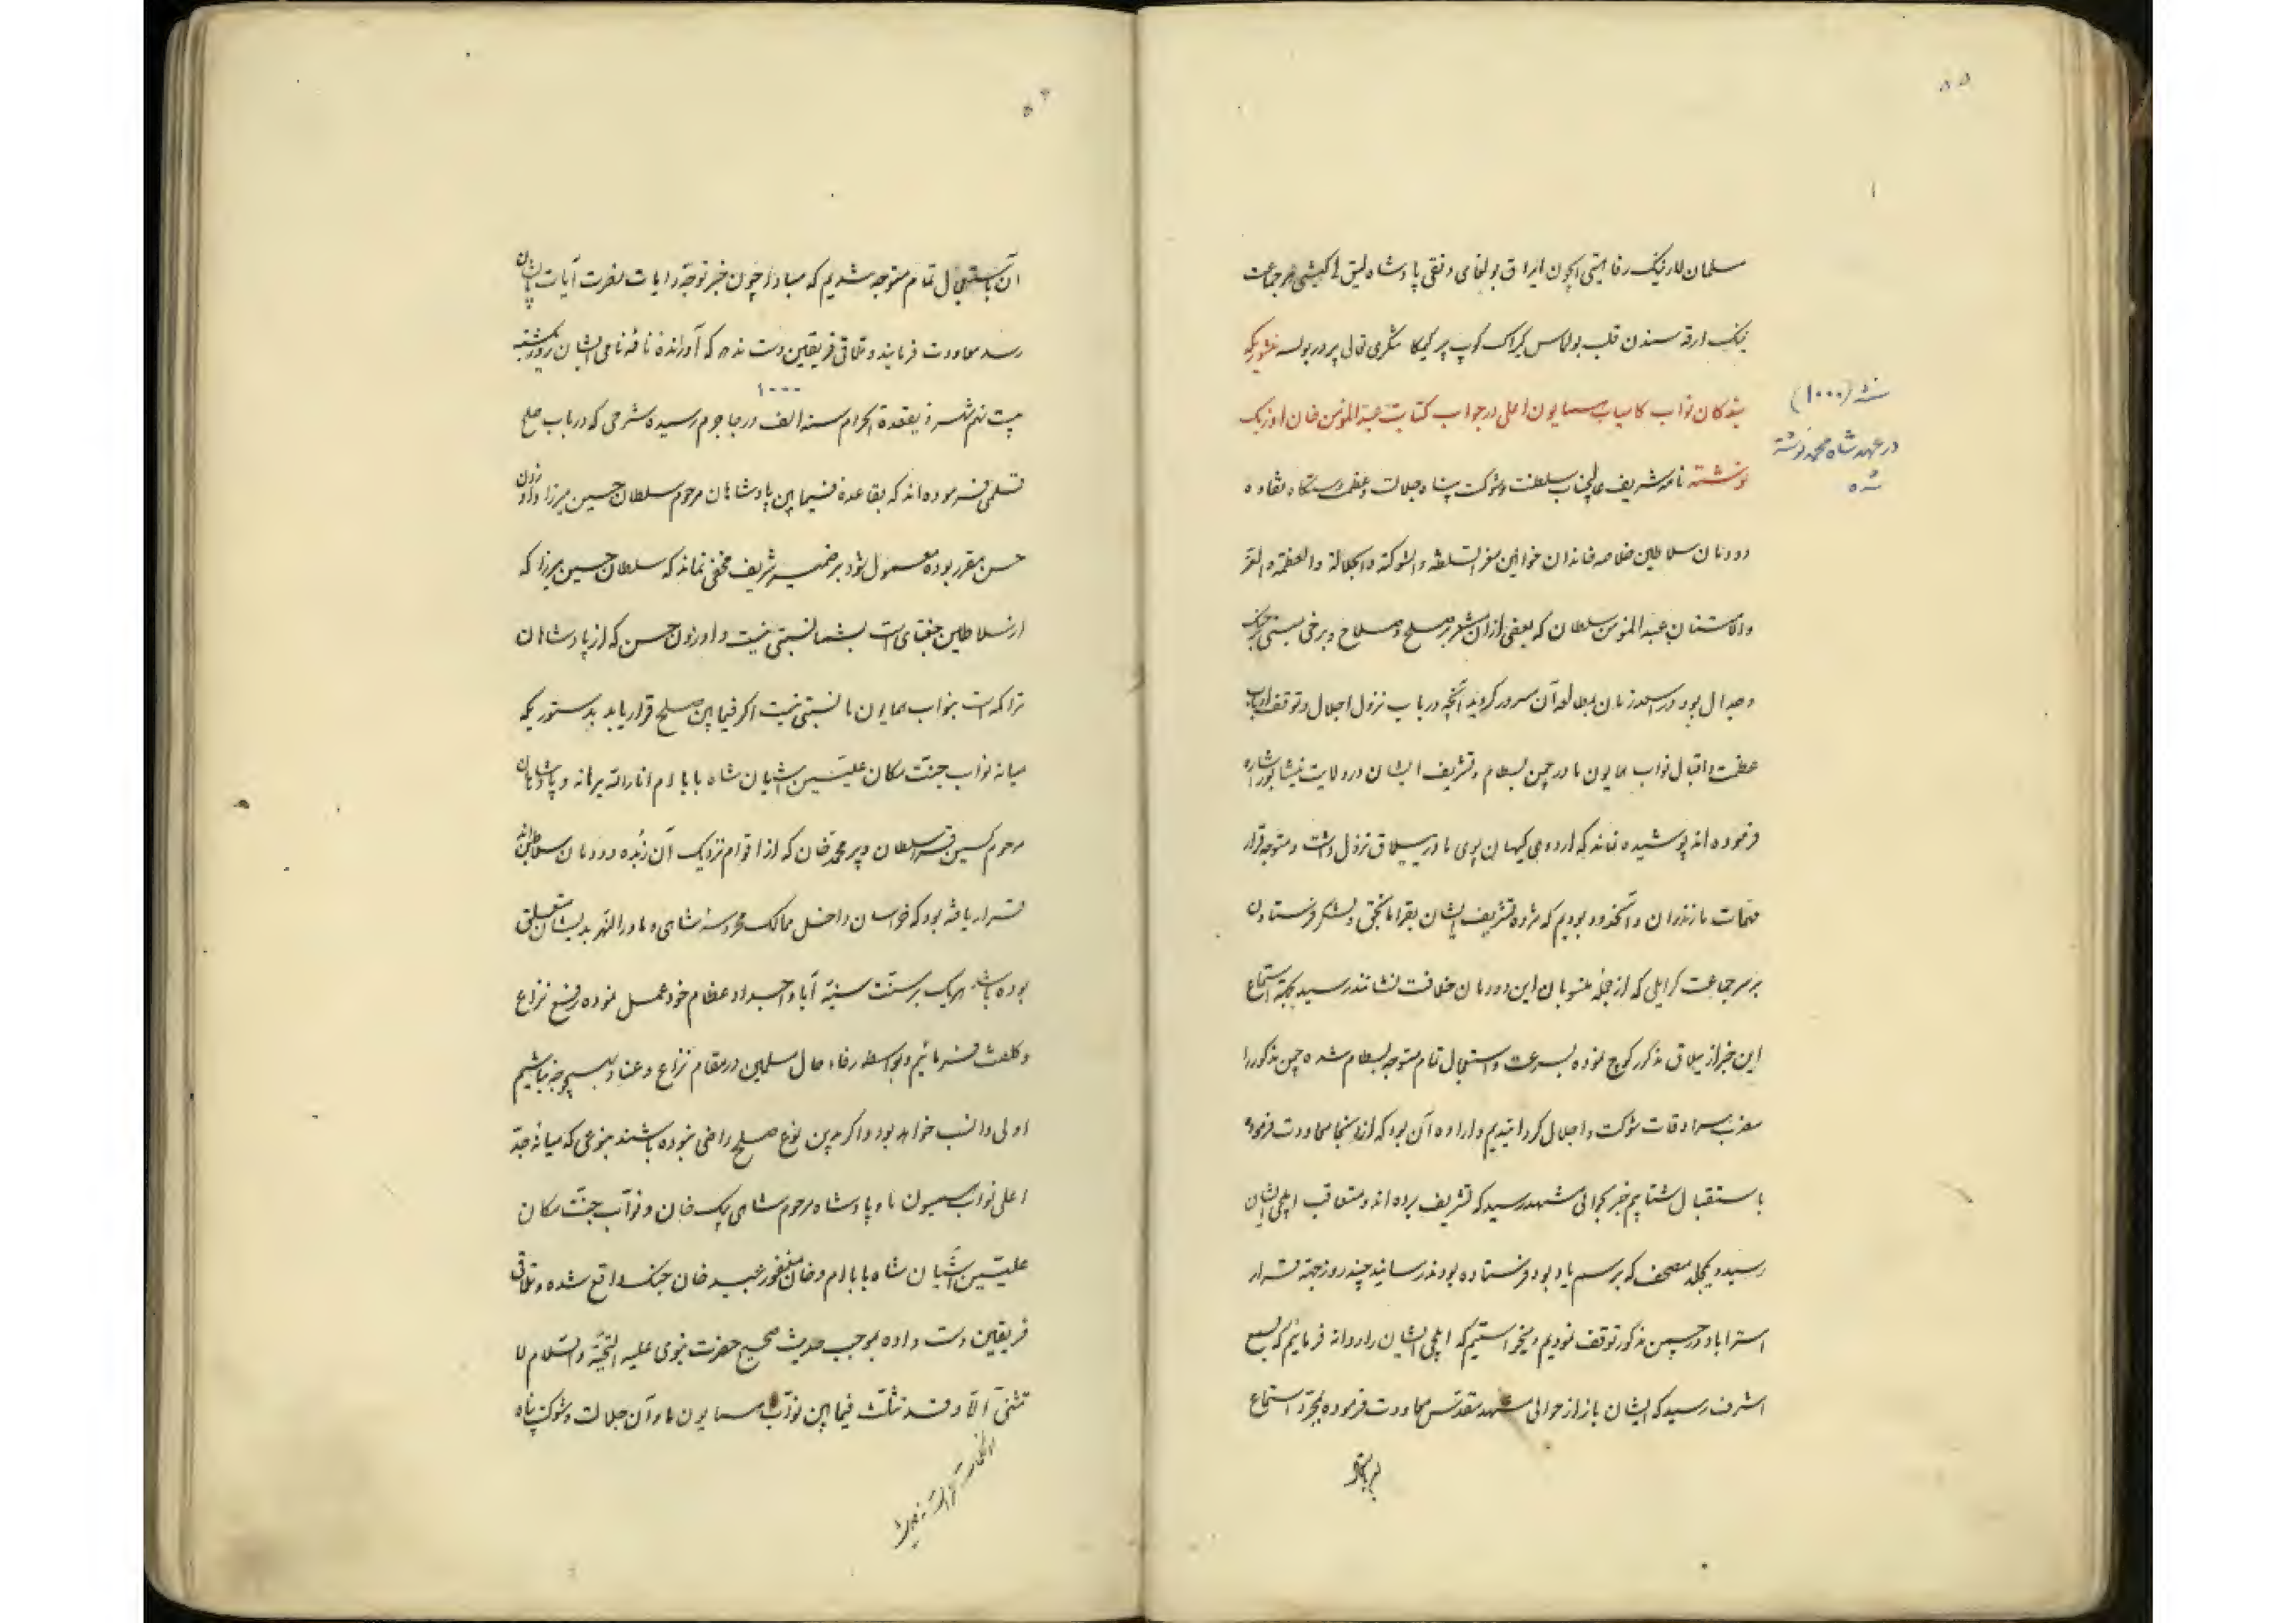 ۵۵
مسلمان لار نینک رفاهیتی ایچون ایراق بولغای و نقی پادشاه لیق کیشی هر جماعت
نینک ارقه سندن قلب بولماس کیراک کوپ پر کیم کا شکری قالی پر در بولسه منشوریکه
بندکان نواب کامیاب همایون اعلی در جواب کتابت عبدالمؤمن خان اوزبک
نوشته نامه شریف عالیجناب سلطنت و شوکت پناه جلالت و عظمت دستکاه نقاوه
دودمان سلاطین خلاصه خاندان خواقین معز السلطنه و الشوکة و الجلالة و العظمة و العز
والامتنان عبدالمؤمن سلطان که بعضی از ان مشعر بر صلح و صلاح و برخی مبنی بر جنک
و جدال بود در اسعد زمان مطالعه آن مسرور کردید آنچه در باب نزول اجلال و توقف ارباب
عظمت و اقبال نواب همایون ما در چمن بسطام و تشریف ایشان در ولایت نیشابور اشاره
فرموده اند پوشیده نماند که اردوی کیهان پوی ما در ییلاق نزول داشت و متوجه قرار
مهمات مازندران و آنحدود بودیم که مژده تشریف ایشان بقرامانجق و لشکر فرستادن
بر سر جماعت کرایلی که از جمله منسوبان این دودمان خلافت نشانند رسید بمجرد استماع
این خبر از ییلاق مذکور کوچ نموده بسرعت و استعجال تمام متوجه بسطام شده چمن مذکور را
مضرب سرادقات شوکت و اجلال کردانیدیم و اراده آن بود که از اینجا معاودت فرموده
باستقبال شتابیم خبر بحوالی مشهد رسید که تشریف برده اند و متعاقب ایلچی ایشان
رسید و یکجلد مصحف که برسم یادبود فرستاده بودند رسانید چند روز جهة قرار
استراباد در چمن مذکور توقف نمودیم و میخواستیم که ایلچی ایشان را روانه فرمائیم که بسمع
اشرف رسید که ایشان باز از حوالی مشهد مقدس معاودت فرموده بمجرد استماع
سنه (۱۰۰۰)
در عهد شاه محمد نوشته
شده
۵۶
آن باستعجال تمام متوجه شدیم که مبادا چون خبر توجه رایات نصرت آیات بایشان
رسد معاودت فرمایند و تلاقی فریقین دست ندهد که آورنده نامه نامی ایشان روز شنبه
۱۰۰۰
بیست نهم شهر ذیقعدة الحرام سنه الف در جاجرم رسیده شرحی که در باب صلح
قلمی فرموده اند که بقاعده فیمابین پادشاهان مرحوم سلطان حسین میرزا و اوزون
حسن مقرر بوده معمول شود بر ضمیر شریف مخفی نماند که سلطان حسین میرزا که
از سلاطین جغتای است بشما نسبتی نیست و اوزون حسن که از پادشاهان
تراکمه است بنواب همایون ما نسبتی نیست اکر فیمابین صلح قرار یابد بدستوریکه
میانه نواب جنت مکان علیین آشیان شاه بابا ام انار الله برهانه و پادشاهان
مرحوم کسین قرا سلطان و پیر محمد خان که از اقوام نزدیک آن زبده دودمان سلاطین اند
قرار یافته بود که خراسان داخل ممالک محروسه شاهی و ماوراءالنهر بدیشان متعلق
بوده باشد هر یک بر سنت سنیه آبا و اجداد عظام خود عمل نموده رفع نزاع
و کلفت فرمائیم و بواسطه رفاه حال مسلمین در مقام نزاع و عناد بهیچوجه نباشیم
اولی و انسب خواهد بود و اکر بدین نوع صلح راضی نبوده باشند بنوعی که میانه جد
اعلی نواب همیون ما و پادشاه مرحوم شاهی بیک خان و نواب جنت مکان
علیین آشیان شاه بابا ام و خان مغفور عبید خان جنک واقع شده و تلاقی
فریقین دست داده بموجب حدیث صحیح حضرت نبوی علیه التحیة والسلام لا
تثنی الا و قد تثلث فیمابین نواب همایون ما و آن جلالت و شوکت پناه